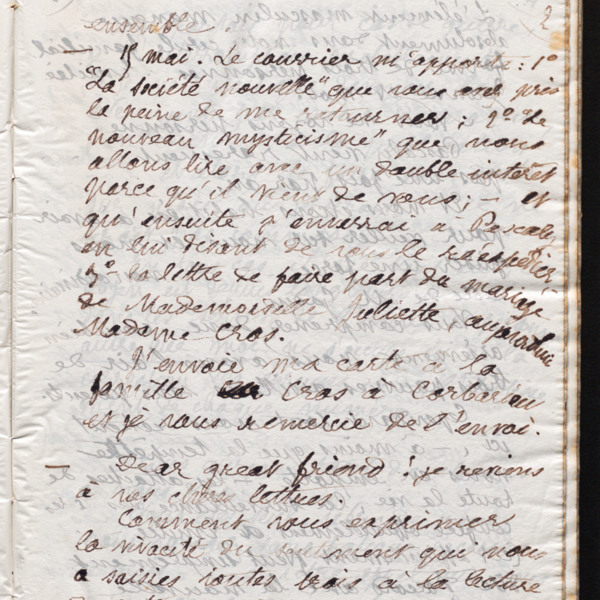 2
ensemble.
— 15 mai. Le courrier m'apporte : 1º
"La société nouvelle" que vous avez pris
la peine de me retourner ; 2º "Le
nouveau mysticisme" que nous
allons lire avec un double intérêt
parce qu'il vient de vous ; — et
qu'ensuite j'enverrai à
en lui disant de vous le réexpédier
3º la lettre de faire part du mariage
de Mademoiselle Juliette, aujourd'hui
Madame Cros.
J'envoie ma carte à la
famille Cros à Corbarieu
et je vous remercie de l'envoi.
— Dear great friend : je reviens
à vos chères lettres.
Comment vous exprimer
la vivacité du sentiment qui nous
a saisies toutes trois à la lecture